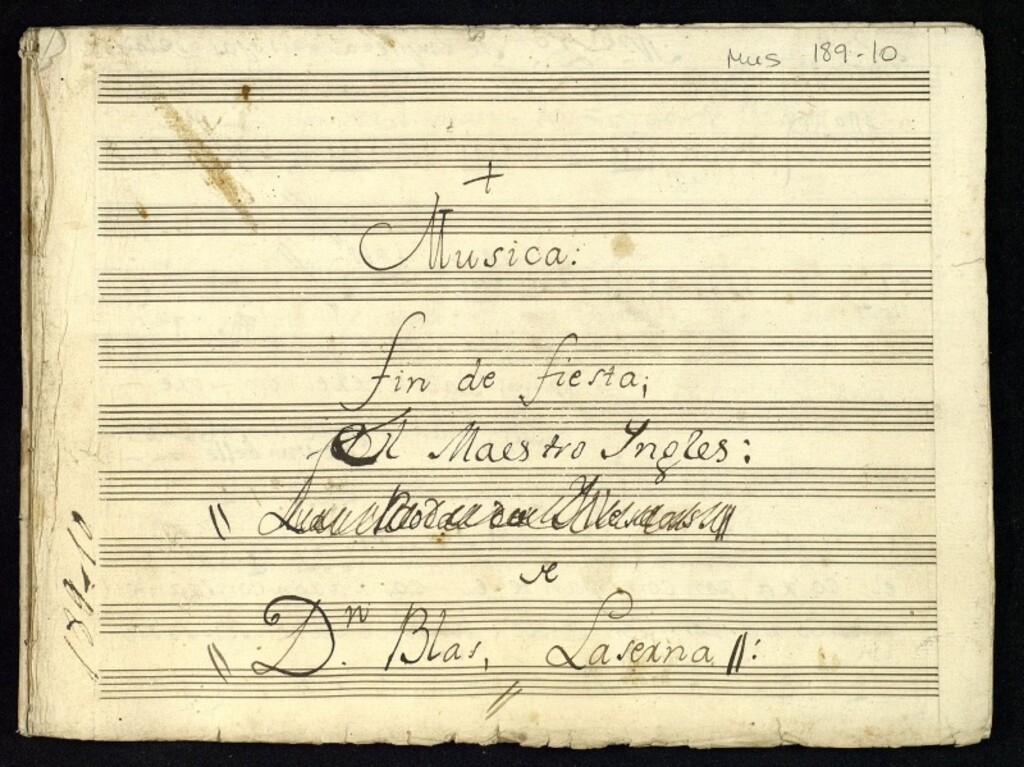 Mus 189-10
+
Musica:
fin de fiesta;
El Maestro Yngles:
De
Dn. Blas, Laserna //:
189-10